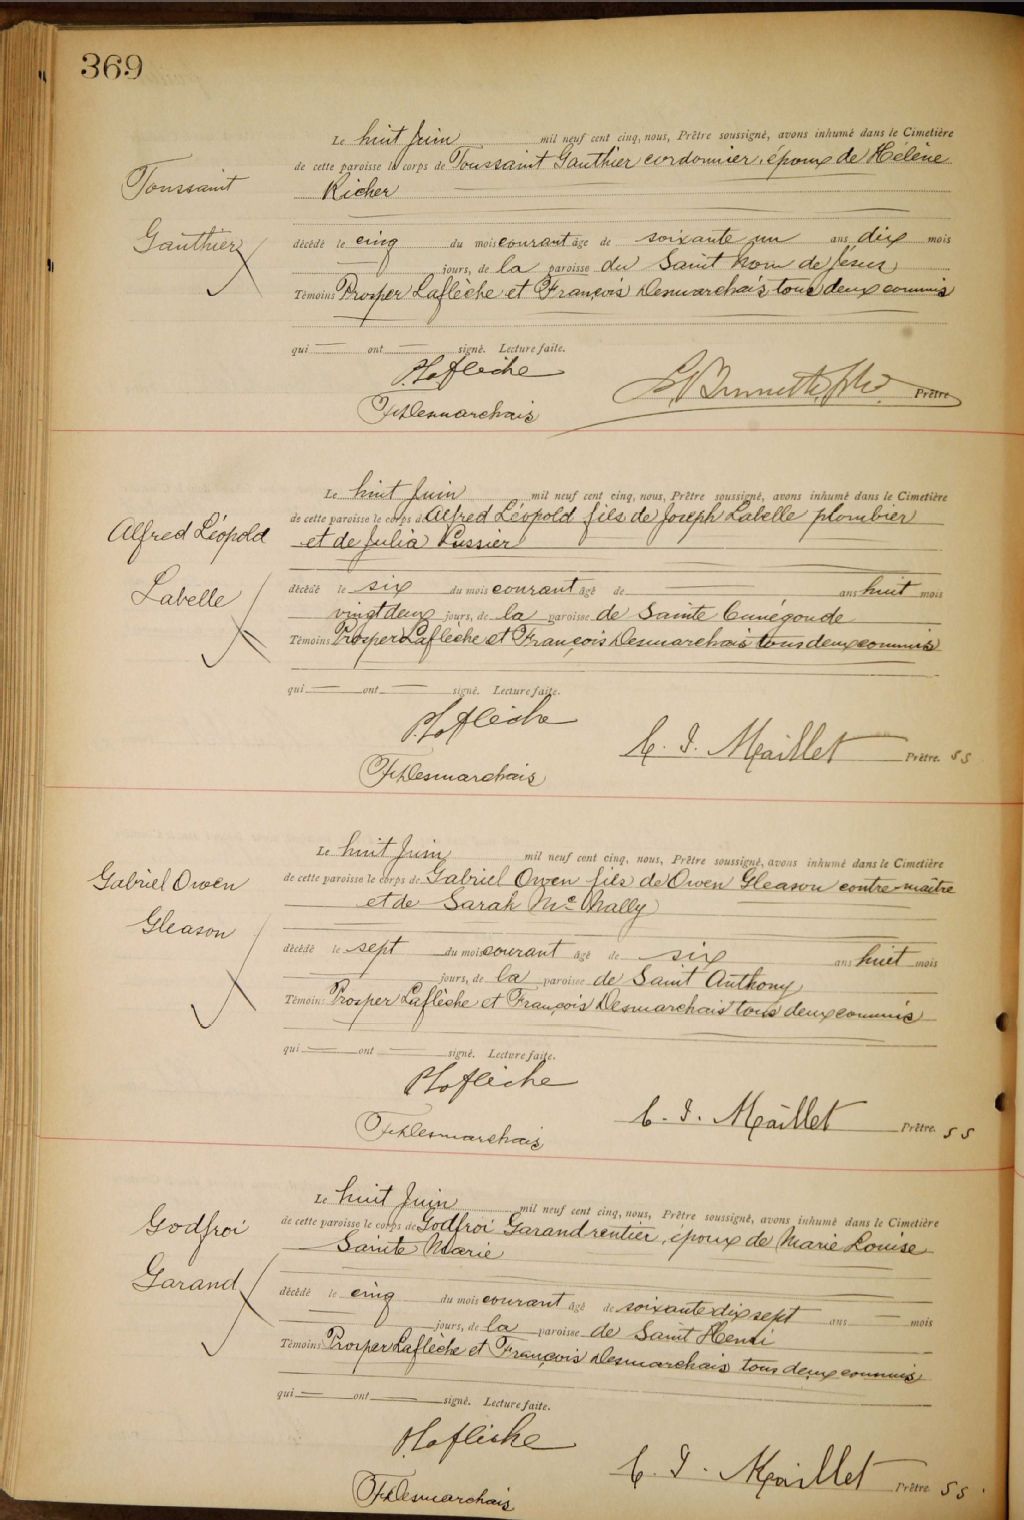 369
Le huit Juin mil neuf cent cinq, nous, Prêtre soussigné, avons inhumé dans le Cimetière
de cette paroisse le corps de Toussaint Gauthier cordonnier, époux de Hélène
Toussaint
Richer
Gauthier
décédé le cinq du mois courant âgé de soixante un ans dix mois
jours, de la paroisse du Saint Nom de Jésus
Témoins Prosper Laflèche et François Desmarchais tous deux commis
qui ont signé. Lecture faite.
P. Laflèche
Prêtre
F. Desmarchais
Le huit Juin mil neuf cent cinq, nous, Prêtre soussigné, avons inhumé dans le Cimetière
de cette paroisse le corps d'Alfred Léopold fils de Joseph Labelle plombier
Alfred Léopold
et de Julia Lussier
Labelle
décédé le six du mois courant âgé de ans huit mois
vingt deux jours, de la paroisse de Sainte Cunégonde
Témoins Prosper Laflèche et François Desmarchais tous deux commis
qui ont signé. Lecture faite.
P. Laflèche
C. J. Maillet Prêtre. SS
F. Desmarchais
Le huit Juin mil neuf cent cinq, nous, Prêtre soussigné, avons inhumé dans le Cimetière
de cette paroisse le corps de Gabriel Owen fils de Owen Gleason contre-maître
Gabriel Owen
et de Sarah Mc Nally
Gleason
décédé le sept du mois courant âgé de six ans huit mois
jours, de la paroisse de Saint Anthony
Témoins Prosper Laflèche et François Desmarchais tous deux commis
qui ont signé. Lecture faite.
P. Laflèche
C. J. Maillet Prêtre. SS
F. Desmarchais
Le huit Juin mil neuf cent cinq, nous, Prêtre soussigné, avons inhumé dans le Cimetière
de cette paroisse le corps de Godfroi Garand rentier, époux de Marie Louise
Godfroi
Sainte Marie
Garand
décédé le cinq du mois courant âgé de soixante dix sept ans mois
jours, de la paroisse de Saint Henri
Témoins Prosper Laflèche et François Desmarchais tous deux commis
qui ont signé. Lecture faite.
P. Laflèche
C. J. Maillet Prêtre SS
F. Desmarchais